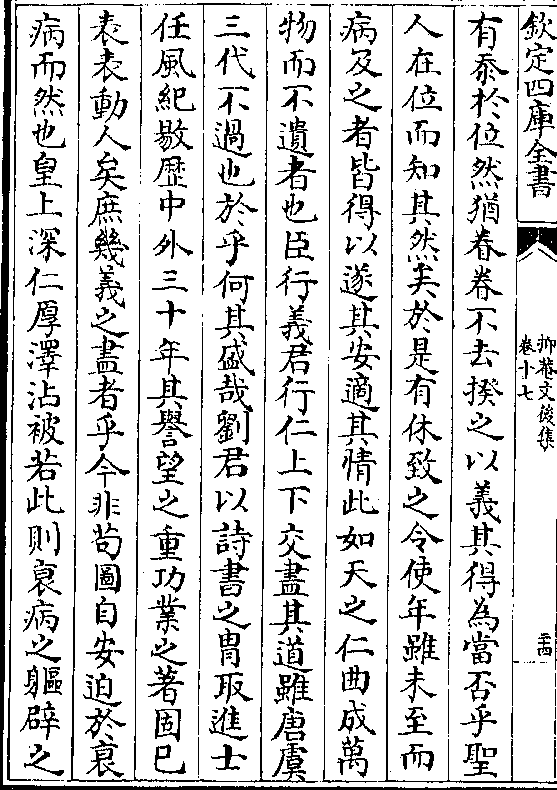 欽定四庫全書
抑菴文後集
卷十七
二十四
有忝於位然猶眷眷不去揆之以義其得為當否乎聖
人在位而知其然矣於是有休致之令使年雖未至而
病及之者皆得以遂其安適其情此如天之仁曲成萬
物而不遺者也臣行義君行仁上下交盡其道雖唐虞
三代不過也於乎何其盛哉劉君以詩書之胄取進士
任風紀敭歷中外三十年其譽望之重功業之著固已
表表動人矣庶幾義之盡者乎今非苟圖自安迫於衰
病而然也皇上深仁厚澤沾被若此則衰病之軀辟之